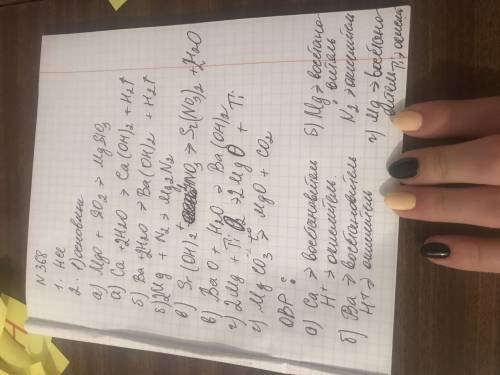 N 368
1. Нет
2. 1) основн
а) MgO + SiO2 → MgSiO3
а) Ca + 2H2O → Ca(OH)2 + H2↑
б) Ba + 2H2O → Ba(OH)2 + H2↑
б) 2Mg + N2 → Mg2N2
в) Sr(OH)2 + HNO3 → Sr(NO3)2 + 2H2O
в) BaO + H2O → Ba(OH)2
г) 2Mg + TiO2 → 2MgO + Ti
г) MgCO3 → MgO + CO2
ОВР:
а) Ca → восстановитель
H+ → окислитель.
б) Ba → восстановитель
H+ → окислитель
б) Mg → восстано-
витель
N2 → окислитель
г) Mg → восстано-
витель
Ti →